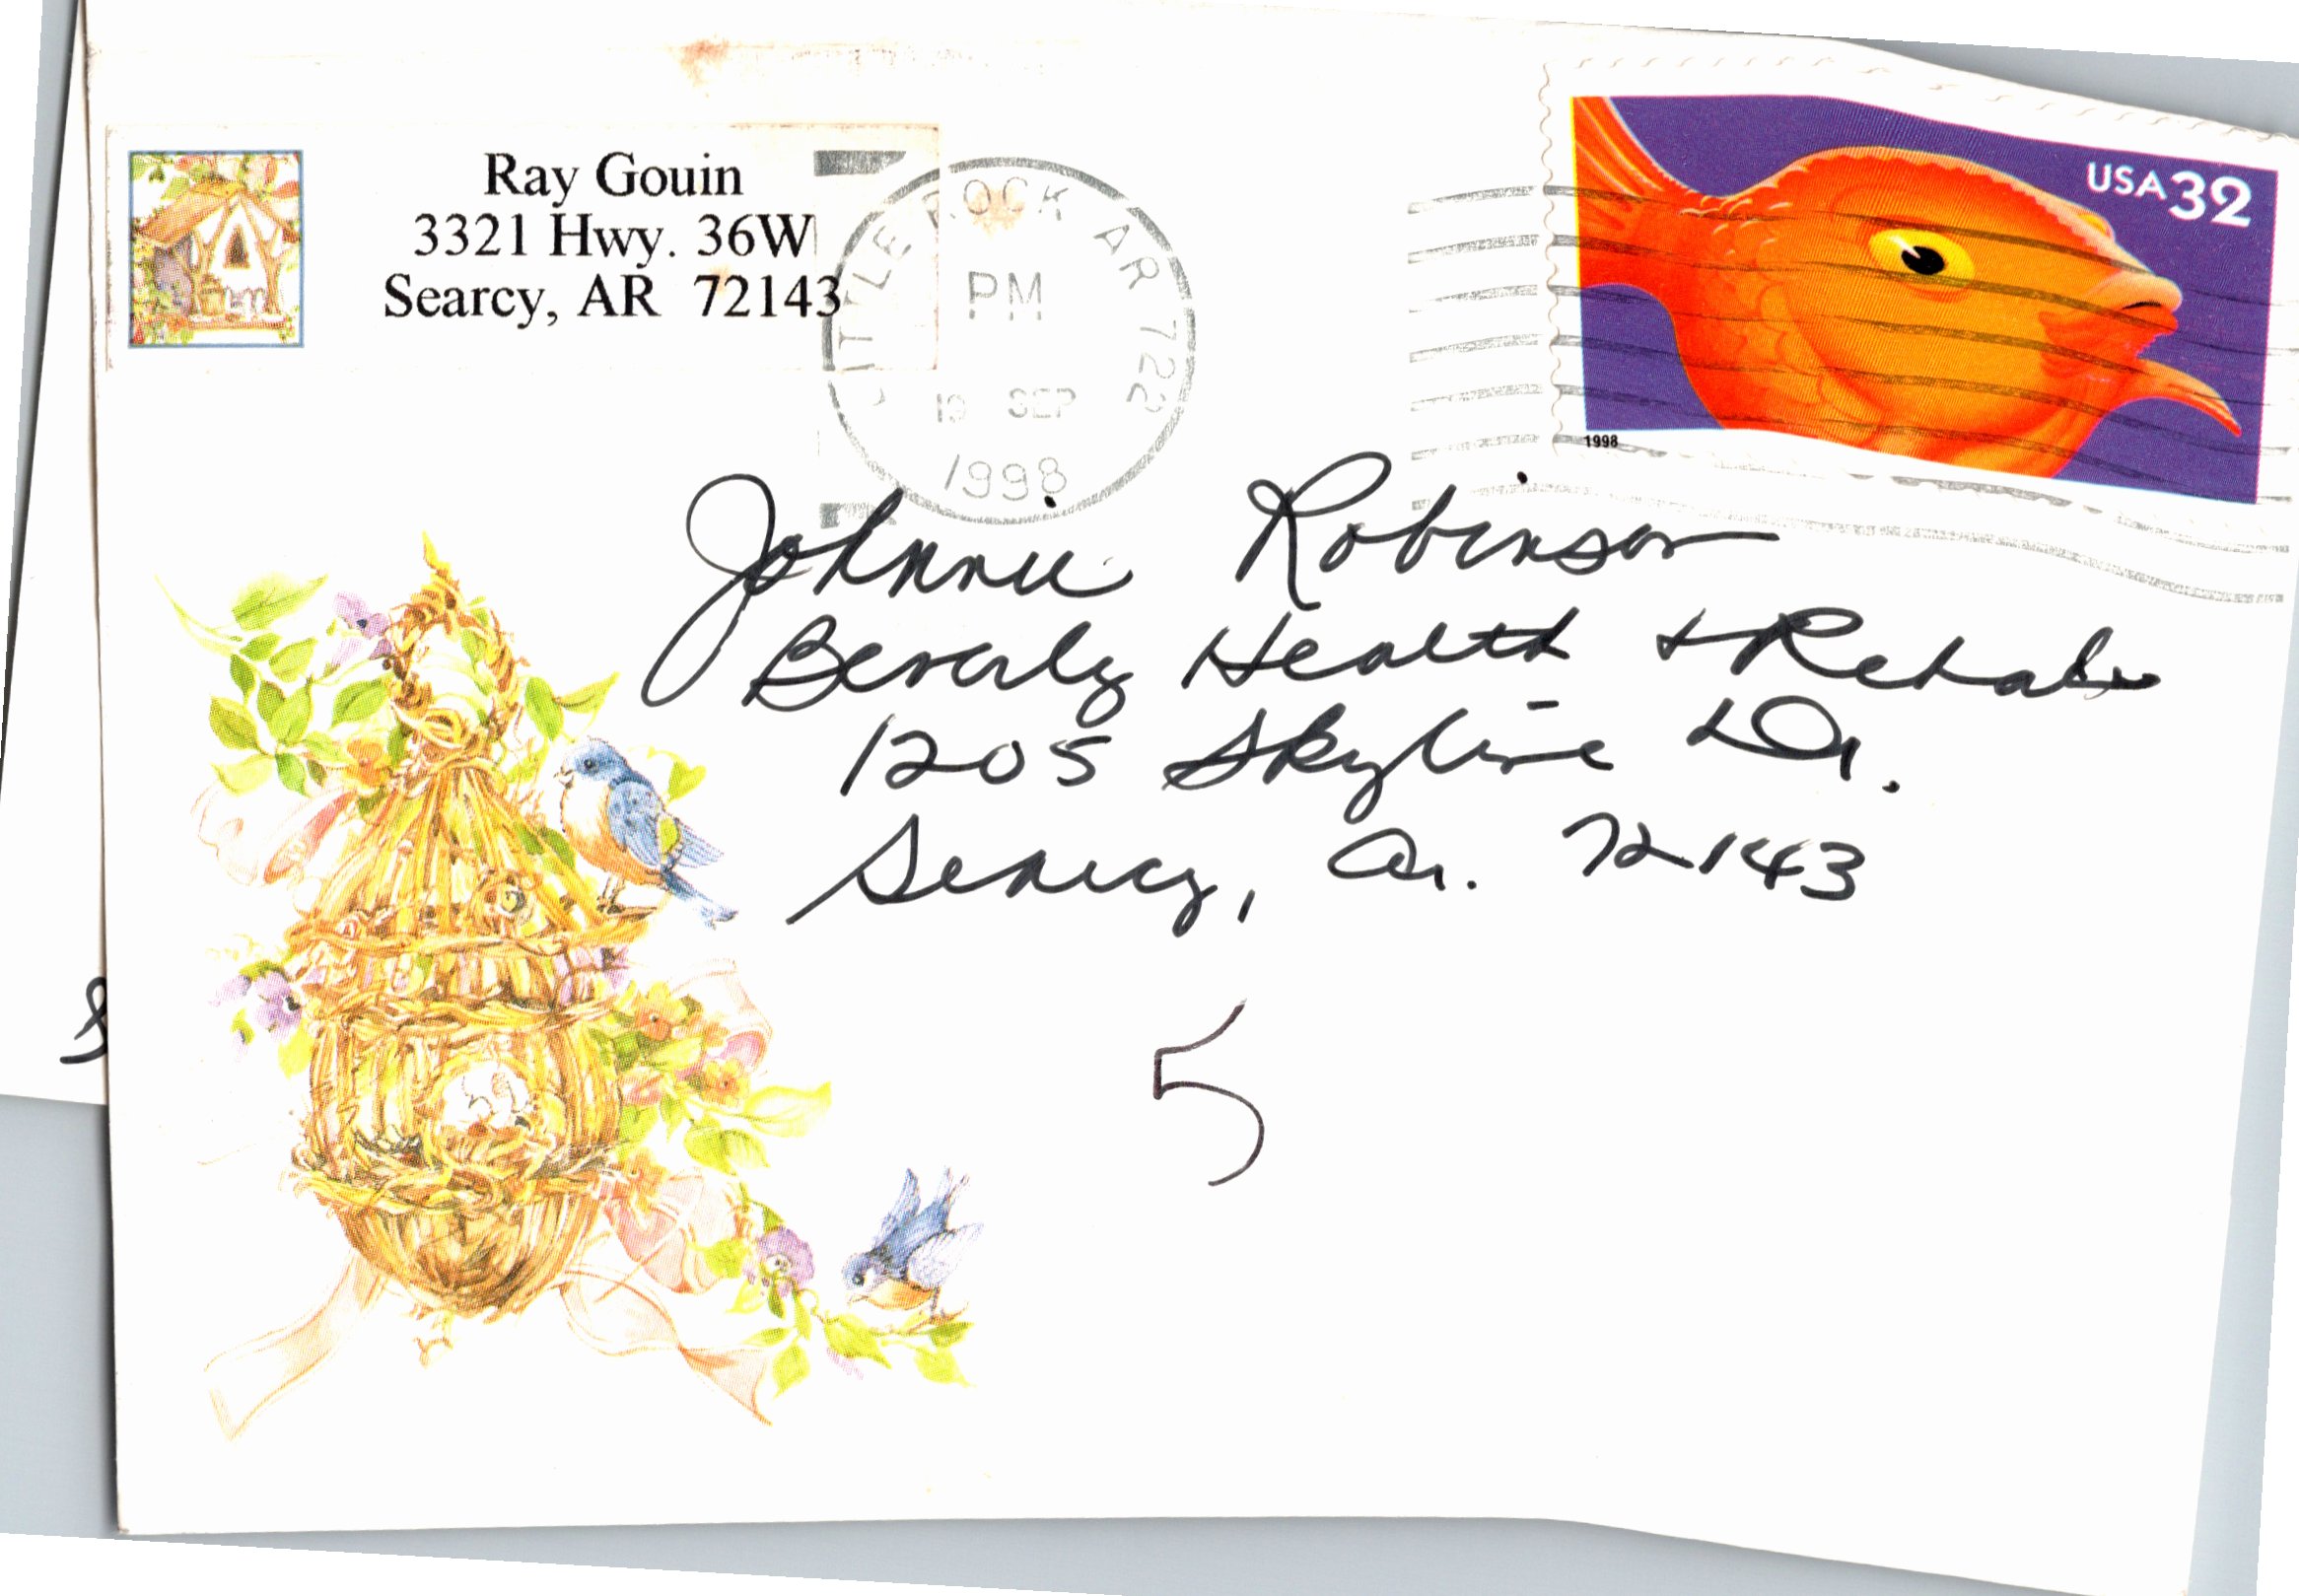 Ray Gouin
3321 Hwy. 36W
Searcy, AR 72143
LITTLE ROCK AR 722
PM
19 SEP
1998
USA 32
1998
Johnnie Robinson
Beverly Health & Rehab
1205 Skyline Dr.
Searcy, Ar. 72143
5